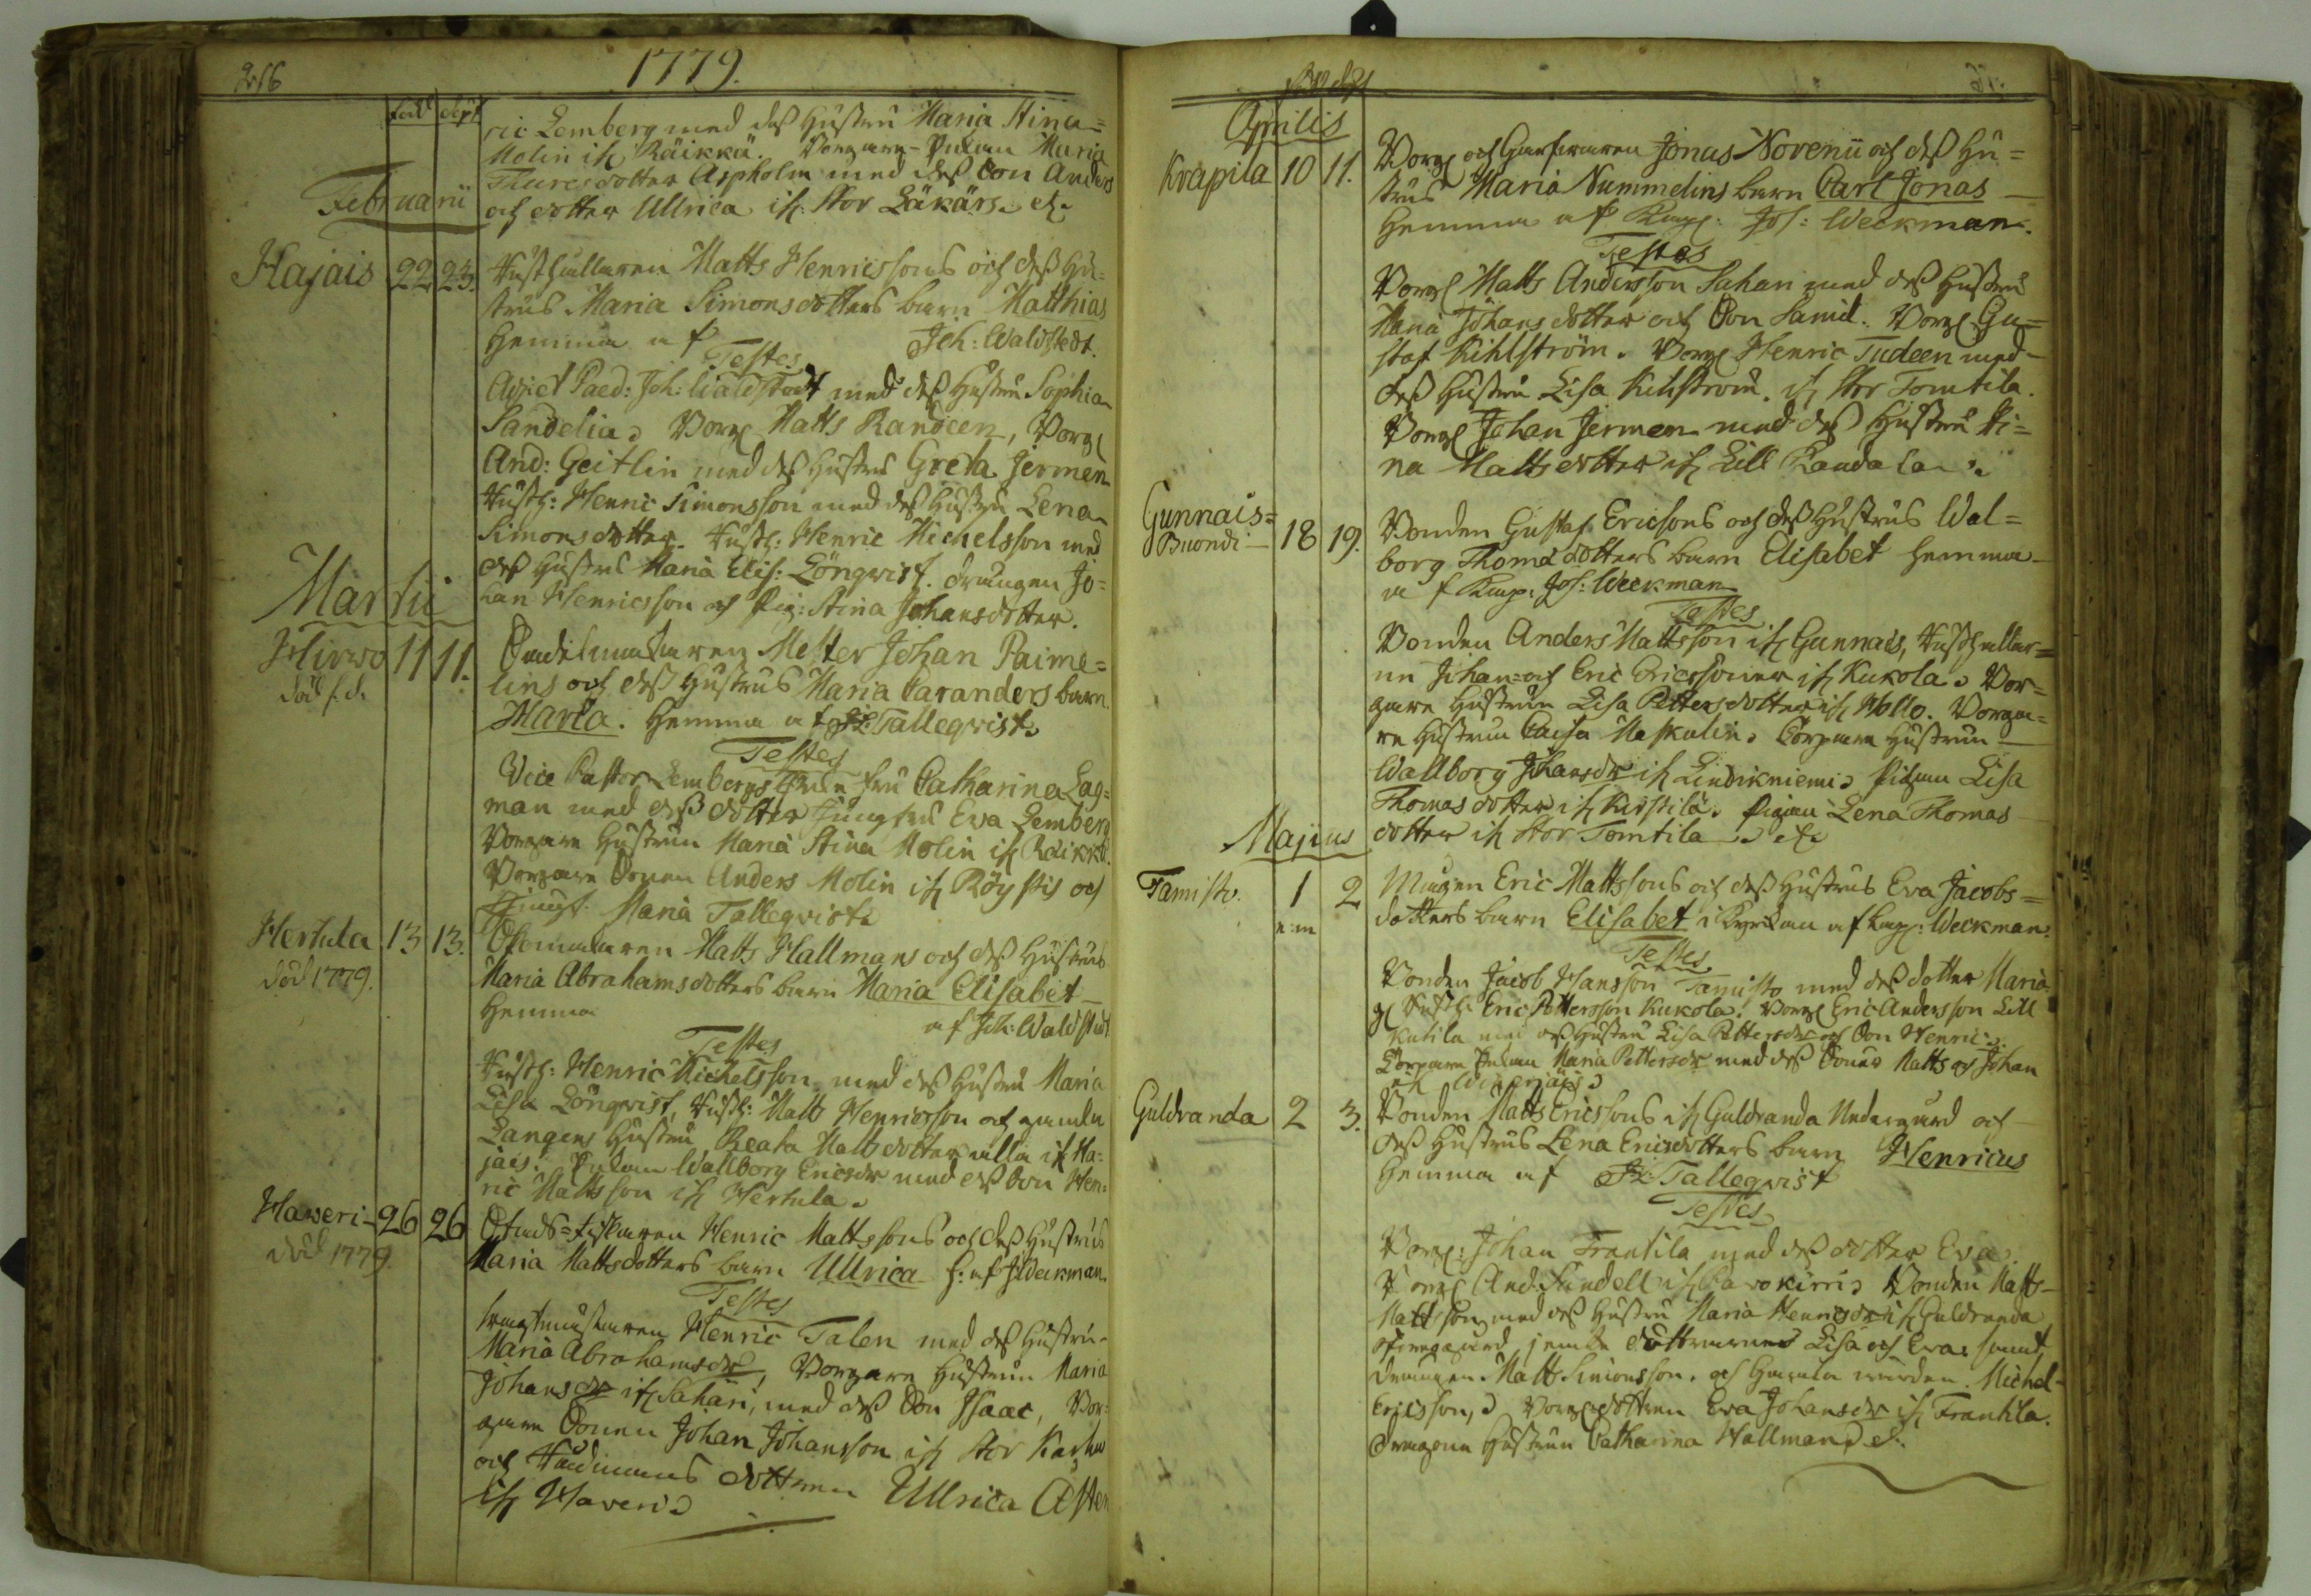 1779.
född döpt
ric Lemberg med dess Hustru Maria Stina
Molin ifr Räikkä. Borgare-Enkan Maria
Thuresdotter Aspholm med dess Son Anders
och dotter Ullrica ifr Stor
Februarii
Hajais 22 23. Hushållaren Matts Henricssons och dess Hu=
strus Maria Simonsdotters barn Matthias
hemma af Joh: Waldstedt.
Testes
Paed: Joh: Waldstedt med dess Hustru Sophia
Sandelia. Borg Matts Randeen, Borg
And: Geitlin med dess Hustru Greta Jermen
Hush: Henric Simonsson med dess Hustru Lena
Simonsdotter. Hush: Henric Michelsson med
dess Hustru Maria Elis: Lönqvist. drängen Jo=
han Henricsson och Pig: Stina Johansdotter.
Martii
Hirwo 11 11. Mester Johan Paime=
död s. d.
lins och dess Hustrus Maria Caranders barn
Maria. hemma af Fr: Talleqvist.
Testes
Vice Pastor Lembergs Enke fru Catharina Lag=
man med dess dotter Jungfru Eva Lemberg
Borgare Hustrun Maria Stina Molin ifr Räikkä.
Borgare Sonen Anders Molin ifr Röyskis och
Jungf. Maria Talleqvist.
Hertula 13 13. Matts Hallmans och dess Hustrus
död 1779.
Maria Abrahamsdotters barn Maria Elisabet
hemma af Joh: Waldstedt
Testes
Hush: Henric Michelsson med dess Hustru Maria
Lisa Lönqvist, Hush: Matts Henricsson och gamla
Langens Hustru Beata Mattsdotter alla ifr Ha=
jais. Enkan Wallborg Ericsdr med dess Son Hen=
ric Mattsson ifr Hertula.
Haweri 26 26 Henric Mattssons och dess Hustrus
död 1779
Maria Mattsdotters barn Ullrica h: af J: Weckman.
Testes
Henric Talen med dess Hustru
Maria Abrahamsdr, Borgare Hustrun Maria
Johansdr ifr Sahari, med dess Son Isaac, Bor=
gare Sonen Johan Johansson ifr Stor Karhu
och dottren Ullrica
ifr Haveri.
Aprilis
Krapila 10 11. Borg och Garfwaren Jonas Novenii och dess Hu=
strus Maria Nummelins barn Carl Jonas
hemma af Kapl: Jos: Weckman.
Testes
Borg Matts Andersson Sahari med dess Hustru
Maria Johansdotter och Son Samuel. Borg Gu=
staf Kihlström. Borg Henric Tudeen med
dess Hustru Lisa Kihlström. ifr Stor Tomtila.
Borg Johan Jermen med dess Hustru Sti=
na Mattsdotter ifr Lill Randala.
Gunnais=
Buondi 18 19. Bonden Gustaf Ericsons och dess Hustrus Wal=
borg Thomädotters barn Elisabet hemma
af Kap: Jos: Weckman
Testes
Bonden Anders Mattsson ifr Gunnais, Hushållar=
ne Johan och Eric Ericssöner ifr Kukola. Bor=
gare Hustrun Lisa Pettersdotter ifr Hollo. Borga=
re Hustrun Caisa Maskulin. Torpare Hustrun
Wallborg Johansdr ifr Lindikniemi. Pigan Lisa
Thomasdotter ifr Kirstilä. Pigan Lena Thomas
Majius dotter ifr Stor Tomtila.
Tamisto. 1 2 Eric Mattssons och dess Hustrus Eva Jacobs=
e:m
dotters barn Elisabet i Kyrkan af Kap: Weckman.
Testes
Bonden Jacob Hansson Tamisto med dess dotter Maria.
Hush: Eric Pettersson Kukola. Borg Eric Andersson Lill
Kutila med dess Hustru Lisa Pettersdr och Son Henric.
Torpare Enkan Maria Pettersdr med dess Söner Matts och Johan
ifr
Guldranda 2 3. Bonden Matts Ericssons ifr Guldranda Nedergård och
dess Hustrus Lena Ericsdotters barn Henricus
hemma af Fr: Tallegvist
Testes
Borg: Johan Frantila med dess dotter Eva.
Borg And: Sundell ifr Bonden Matts
Mattsson med dess Hustru Maria Henricsdr ifr Guldranda
Öfwregård, jemte döttrarna Lisa och Eva samt
drängen Matts Simonsson. och Michel
Ericsson, Borg dottren Eva Johansdr ifr Frantila.
Dragone Hustrun Catharina Hallman